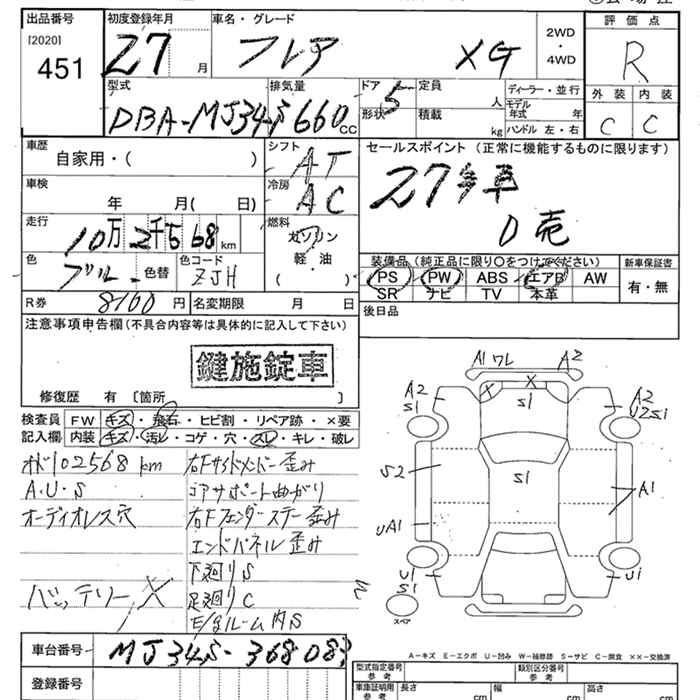 出品番号 初度登録年月 車名・グレード 評価点
[2020] 451 27 月 フレア XG 2WD ・ 4WD R
型式 排気量 ドア形状 定員 ディーラー・並行 外装 内装
DBA-MJ34S 660 cc 5 人 モデル年式 年式 C C
積載 kg ハンドル 左・右
車歴 シフト セールスポイント (正常に機能するものに限ります)
自家用・( ) AT
車検 冷房 27年車
年 月( 日) AC D売
走行 燃料
10万2千568 km ガソリン
軽・油
( )
色 色替 色コード 装備品(純正品に限り○をつけてください) 新車保証書
ブルー ZJH PS PW ABS エアB AW 有・無
SR ナビ TV 本革
R券 8100 円 名変期限 月 日 後日品
注意事項申告欄(不具合内容等は具体的に記入して下さい)
鍵施錠車
修復歴 有 〔箇所 〕
検査員 FW キズ・飛石・ヒビ割・リペア跡・×要
記入欄 内装 キズ・汚レ・コゲ・穴・スレ・キレ・破レ
オド102568km
A.U.S
オーディオレス穴
バッテリー×
右Fサイドメンバー歪み
コアサポート曲がり
右Fフェンダーステー歪み
エンドパネル歪み
下廻りS
足廻りC
E/gルーム内S
A1 ワレ A2
A2 S1 X X S1 A2 U2S1
S2 S1 A1
UA1
U1 S1 U1
スペア
A-キズ E-エクボ U-凹み W-補修跡 S-サビ C-腐食 ××-交換済
車台番号 MJ34S-368083
登録番号
型式指定番号 参考 類別区分番号 参考
車庫証明用 参考 長さ cm 幅 cm 高さ cm